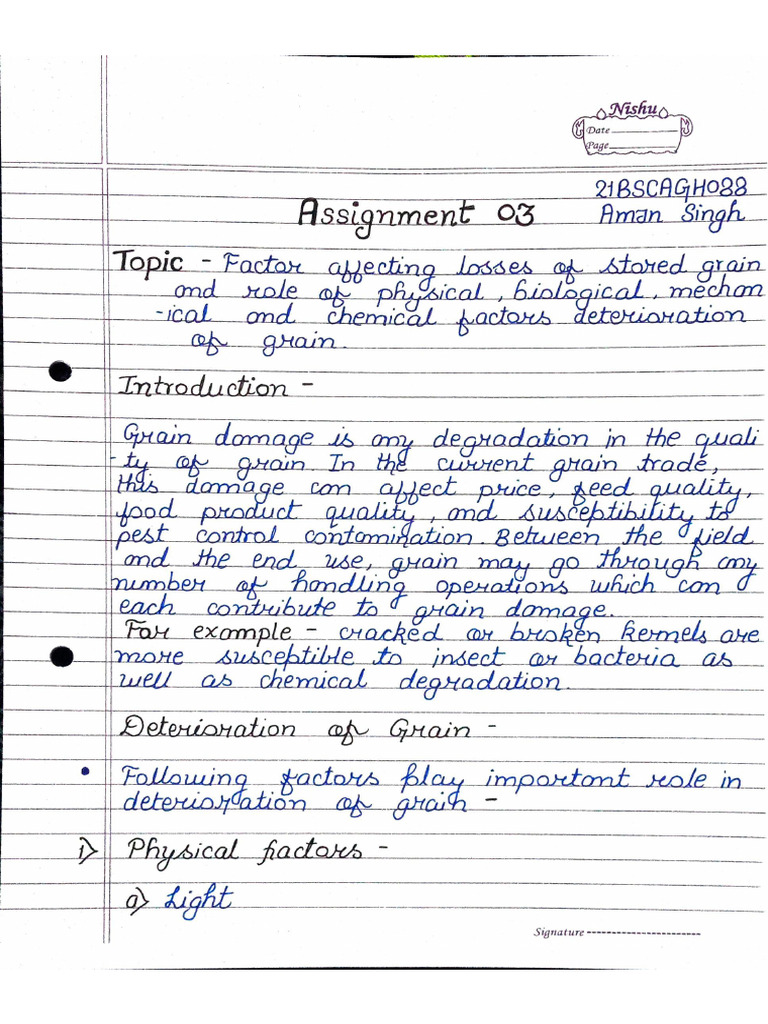 Nishu
Date
Page
21BSCAGH088
Assignment 03
Aman Singh
Topic - Factor affecting losses of stored grain
and role of physical, biological, mechan
-ical and chemical factors deterioration
of grain.
Introduction -
Grain damage is any degradation in the quali
-ty of grain. In the current grain trade,
this damage can affect price, feed quality,
food product quality, and susceptibility to
pest control contamination. Between the field
and the end use, grain may go through any
number of handling operations which can
each contribute to grain damage.
For example - cracked or broken kernels are
more susceptible to insect or bacteria as
well as chemical degradation.
Deterioration of Grain -
• Following factors play important role in
deterioration of grain -
i) Physical factors -
a) Light
Signature